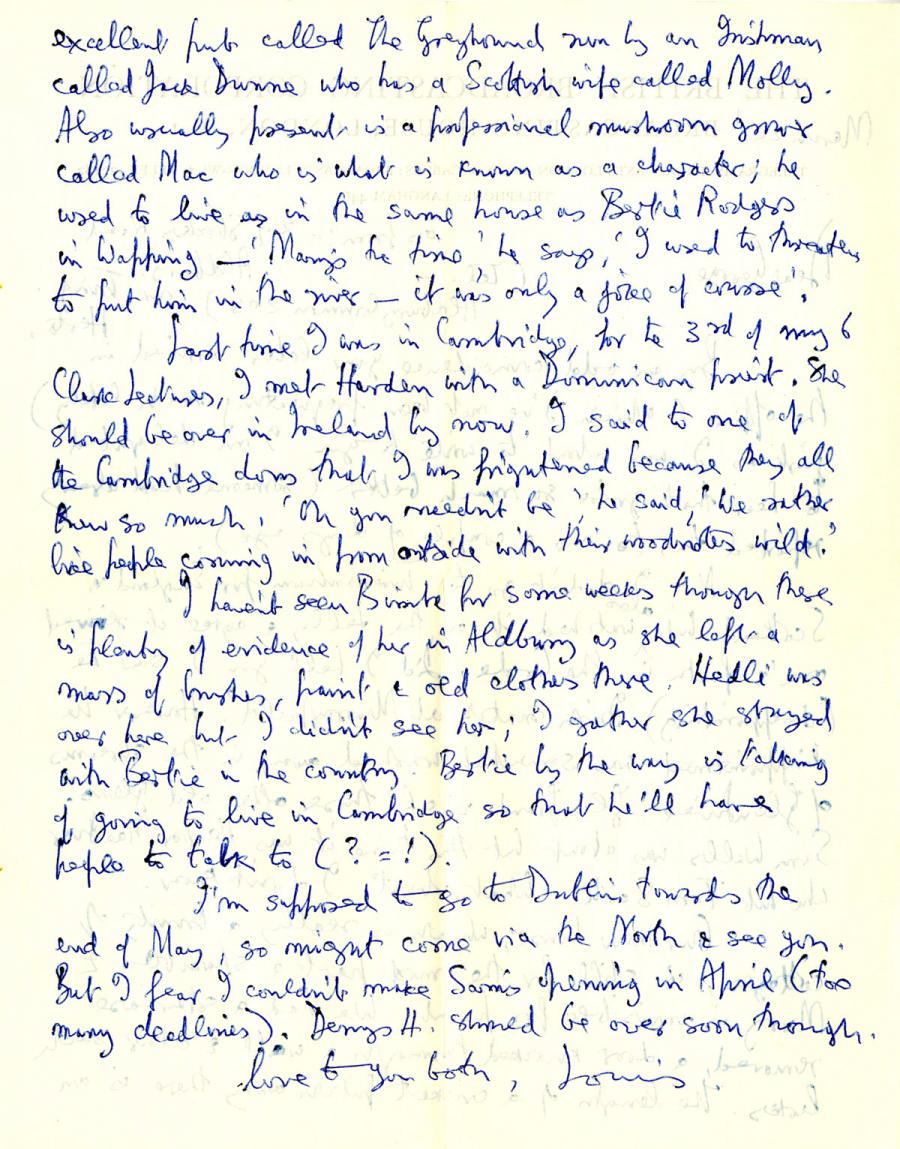 excellent pub called The Greyhound run by an Irishman
called Jack Dunne who has a Scottish wife called Molly.
Also usually present is a professional mushroom grower
called Mac who is what is known as a character; he
used to live as in the same house as Bertie Rodgers
in Wapping — 'Manys the time' he says, 'I used to threaten
to put him in the river — it was only a joke of course'.
Last time I was in Cambridge, for the 3rd of my 6
Clark Lectures, I met Harden with a Dominican priest. She
should be over in Ireland by now. I said to one of
the Cambridge dons that I was frightened because they all
knew so much. 'Oh you needn't be', he said, 'We rather
like people coming in from outside with their woodnotes wild.'
I haven't seen for some weeks though there
is plenty of evidence of her in Aldbury as she left a
mass of brushes, paint & old clothes there. Hedli was
over here but I didn't see her; I gather she stayed
with Bertie in the country. Bertie by the way is talking
of going to live in Cambridge so that he'll have
people to talk to (? = !).
I'm supposed to go to Dublin towards the
end of May, so might come via the North & see you.
But I fear I couldn't make Sam's opening in April (too
many deadlines). Denys H. should be over soon though.
love to you both, Louis